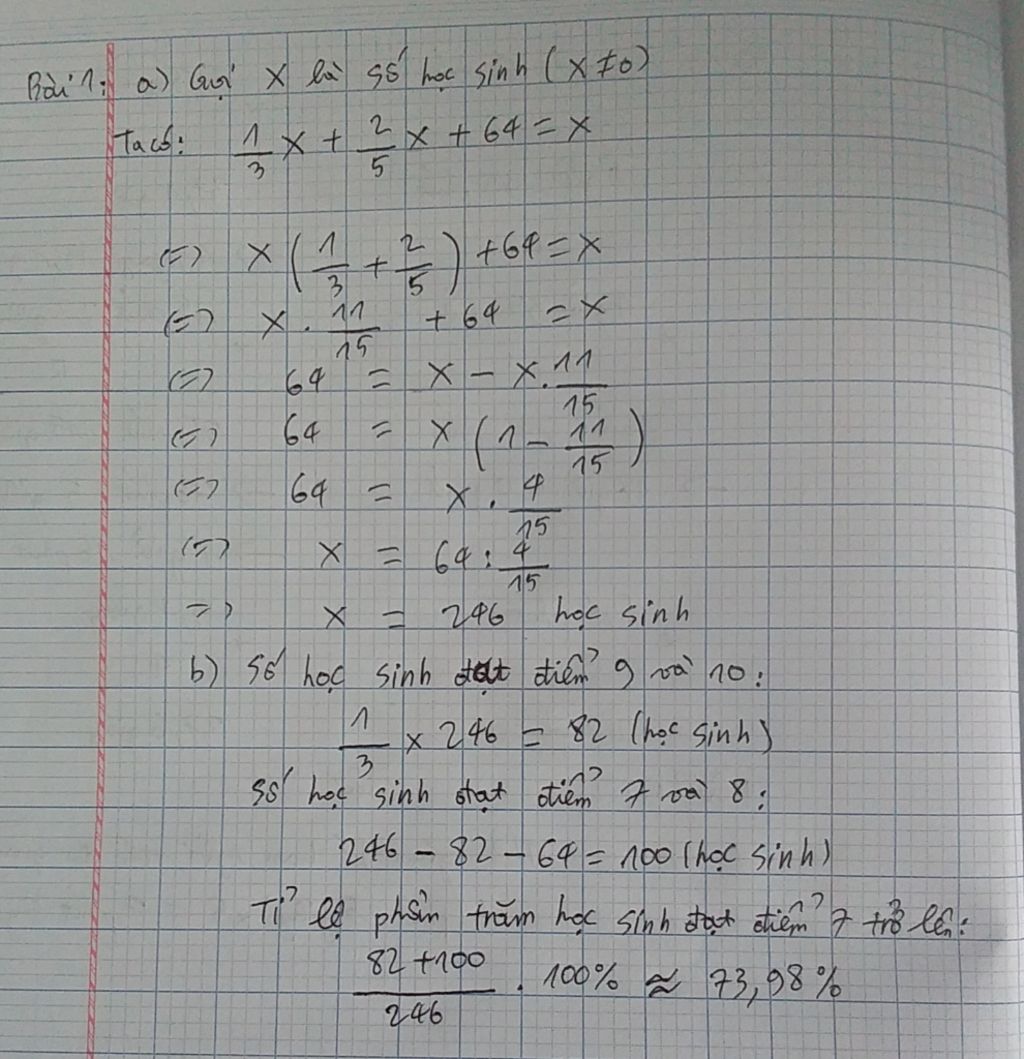 Bài 1: a) Gọi x là số học sinh (x ≠ 0)
Ta có: 1/3 x + 2/5 x + 64 = x
<=> x (1/3 + 2/5) + 64 = x
<=> x . 11/15 + 64 = x
<=> 64 = x - x. 11/15
<=> 64 = x (1 - 11/15)
<=> 64 = x . 4/15
<=> x = 64 : 4/15
=> x = 246 học sinh
b) Số học sinh đạt điểm 9 và 10:
1/3 x 246 = 82 (học sinh)
Số học sinh đạt điểm 7 và 8:
246 - 82 - 64 = 100 (học sinh)
Tỉ lệ phần trăm học sinh đạt điểm 7 trở lên:
(82 + 100)/246 . 100% ≈ 73,98%